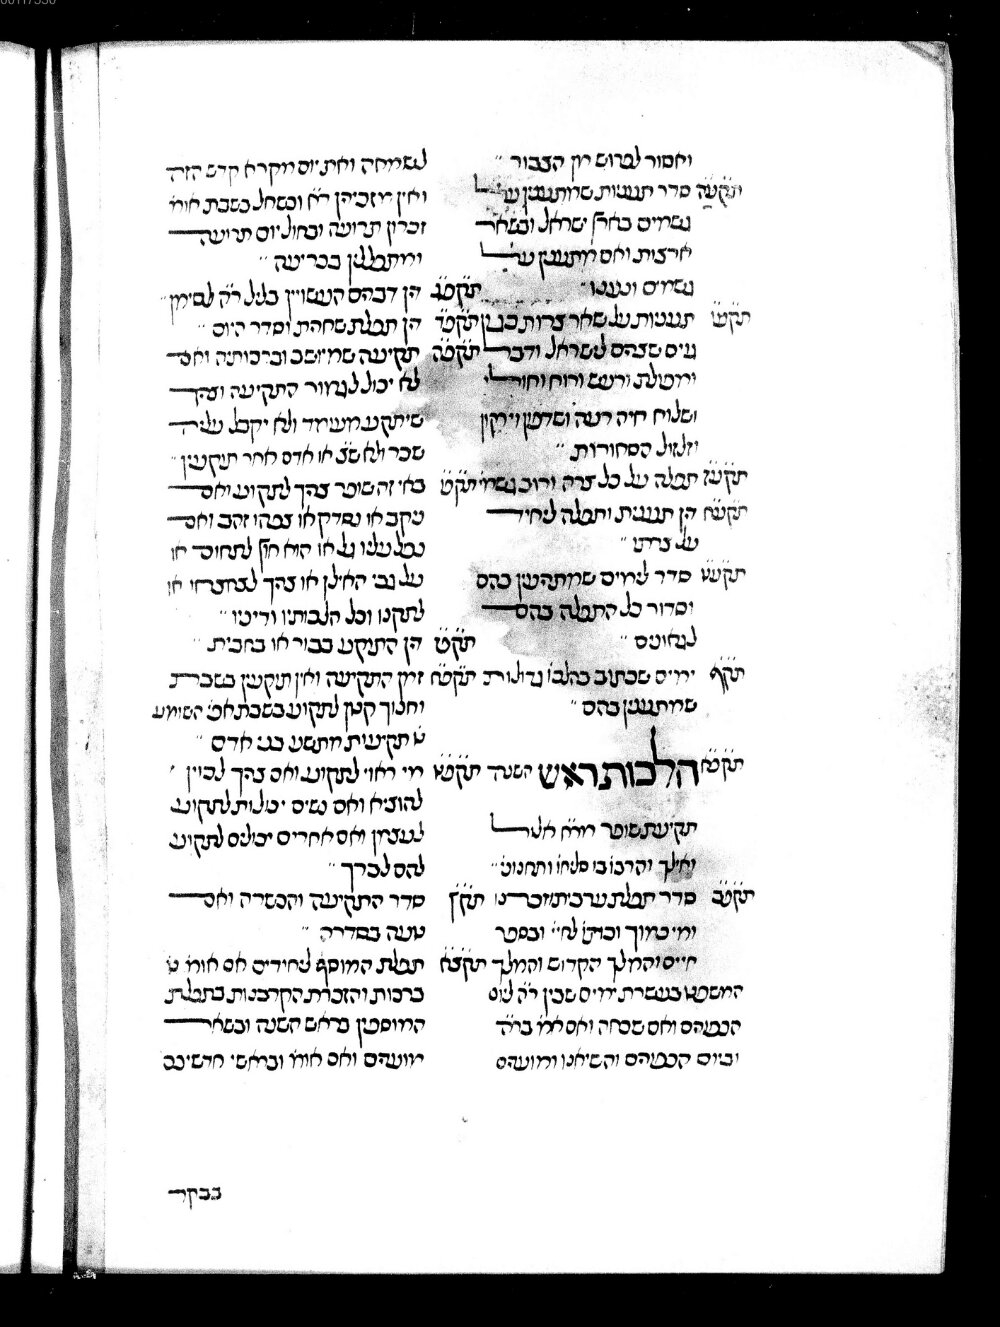 ואסור לפרוש מן הצבור
תקעה סדר תעניות שמתענין על
גשמים בארץ ישראל ובשאר
ארצות ואם מתענין על
גשמים ונענו
תקעו תעניות על שאר צרות כגון
גוים שצרים לישראל ודבר
ומפולת ורעש ורוח וחולי
ושלוח חיה רעה ושדפון וירקון
וזלזול הסחורות
תקעז תפלה על כל צרה ורוב גשמי׳
תקעח הן תענית ותפלה ליחיד
על צרתו
תקעט סדר לימים שמתענין בהם
וסדור כל התפלה בהם
לגאונים
תקף ימים שכתוב בהל׳ גדולות
שמתענין בהם
תקפא הלכות ראש השנה
תקיעת שופר מר״ח אלול
ואילך והרבו בו סליחו׳ ותחנוני׳
תקפב סדר תפלת ערבית וזכרנו
ומי כמוך וכתו׳ לחיי׳ ובספר
חיים והמלך הקדוש והמלך
המשפט בעשרת ימים שבין ר״ה ליום
הכפורים ואם שכחה ואם אומ׳ בר״ה
וביום הכפורים והשיאנו ומועדים
לשמחה ואת יום מקרא קדש הזה
ואין מזכירין ר״ח וכשחל בשבת אומ׳
זכרון תרועה ובחול יום תרועה
ומתפללין בכריעה
תקפג הן דברים העשויין בליל ר״ה לסימן
תקפד הן תפלת שחרית וסדר היום
תקפה תקיעה שמיושב וברכותיה ואם
לא יכול לגמור התקיעה וצריך
שיתקע מעומד ולא יקבל עליה
שכר ולא ש״צ או אדם אחר תוקעין
תקפו באי זה שופר צריך לתקוע ואם
ניקב או נסדק או צפהו זהב ואם
נפל עליו גל או הוא חוץ לתחום או
על גבי האילן או צריך לצחצחו או
לתקנו וכל הלכותיו ודיניו
תקפז הן התוקע בבור או בחבית
תקפח זמן התקיעה ואין תוקעין בשבת
וחנוך קטן לתקוע בשבת אפי׳ השומע
ט׳ תקיעות מתשע בני אדם
תקפט מי ראוי לתקוע ואם צריך לכוין
להוציא ואם נשים יכולות לתקוע
לעצמן ואם אחרים יכולים לתקוע
להם לברך
תקץ סדר התקיעה והכשרה ואם
טעה בסדרה
תקצא תפלת המוסף ליחידים אם אומ׳ ט׳
ברכות והזכרת הקרבנות בתפלת
המוספין בראש השנה ובשאר
מועדים ואם אומ׳ ובראשי חדשיכם
בבקר